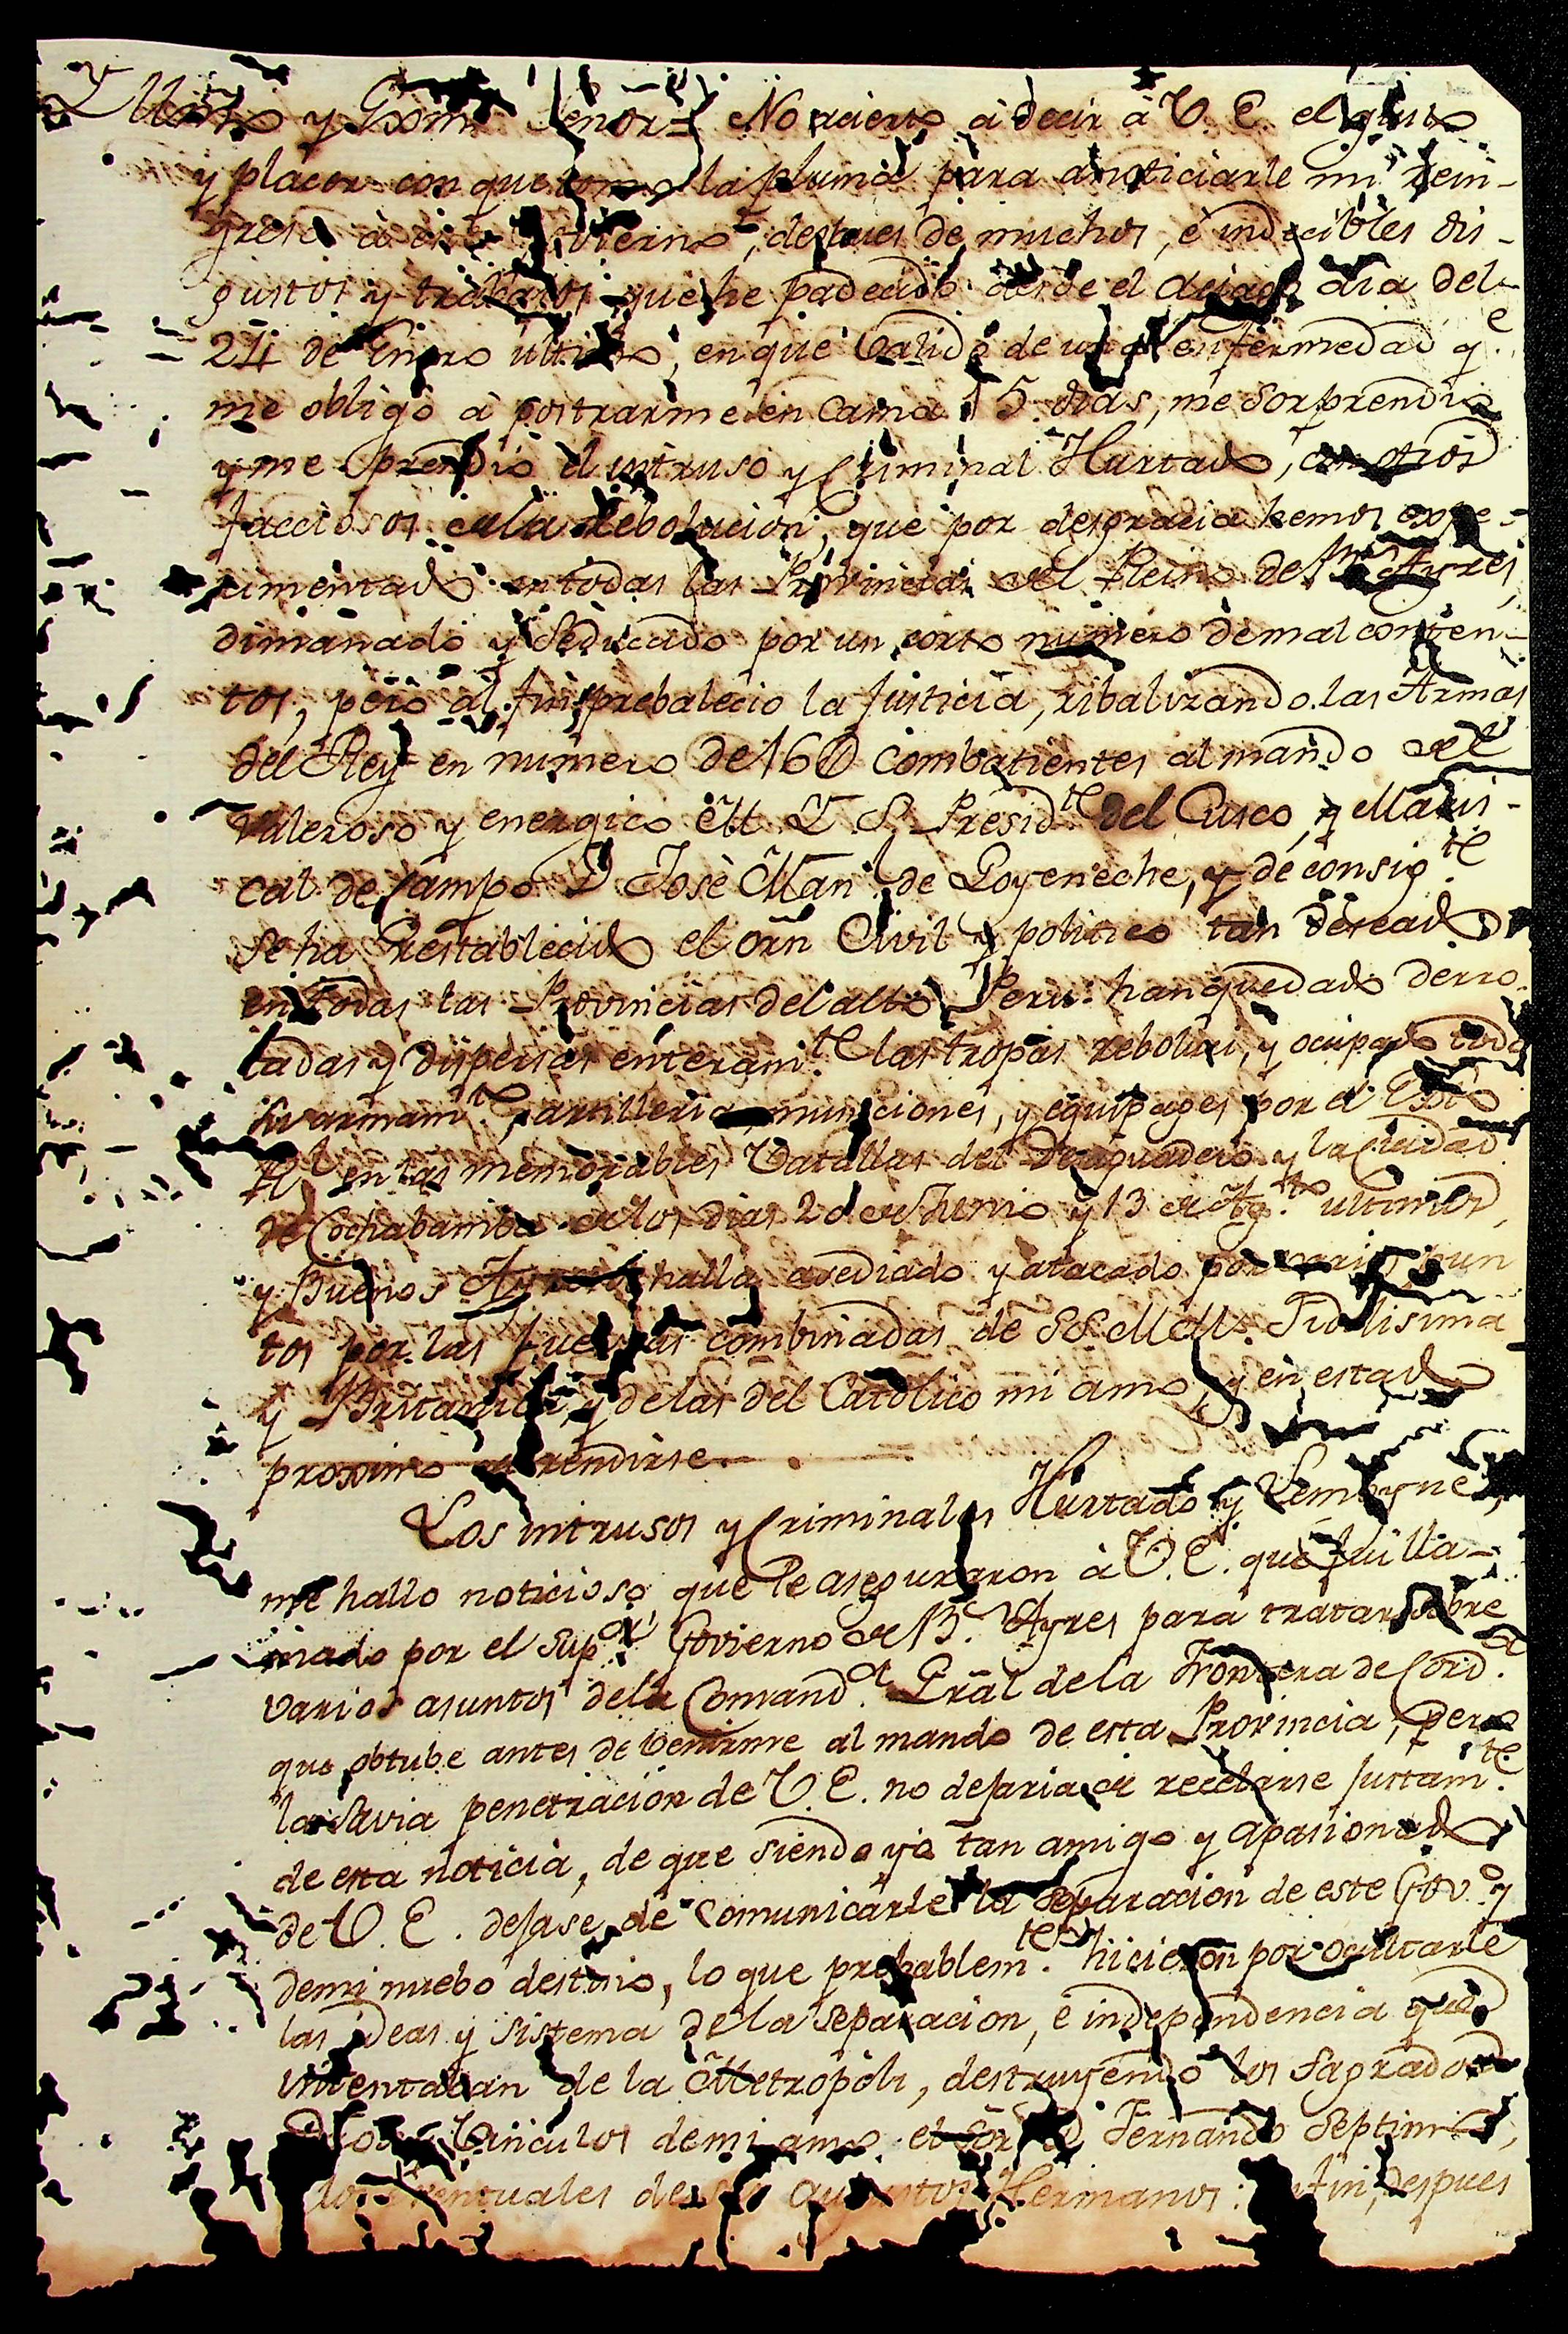 Illmo. y Exmo. Señor= No acierto â decir â V. E. el gusto
y placer con que tomo la pluma para anoticiarle mi rein-
greso â este Govierno, despues de muchos, é indecibles dis-
gustos y trabajos que he padecido desde el aciago dia del
24 de Enero ultimo, en que valido de una enfermedad q.e
me obligó â postrarme en Cama 15 dias, me Sorprendió
y me prendió el intruso y Criminal Hurtado, con otros
facciosos de la Rebolucion, que por desgracia hemos expe-
rimentado en todas las Provincias del Reino de Bs. Ayres,
dimanado y Seducado por un corto numero de mal conten-
tos, pero al fin prebalecio la Justicia, ribalizando las Armas
del Rey en numero de 16D combatientes al mando del
valeroso y energico M. I. S. Presid.te del Cusco, y Maris-
cal de Campo D José Man.l de Goyeneche, y de consig.te
se ha restablecido el orñ Civil y politico tan deseado
en todas las Provincias del alto Peru: han quedado derro-
tadas y dispersas enteram.te las tropas rebolări, y ocupado todo
su armam.to, artilleria, municiones, y equipages por el Exto
Rl en las memorables Batallas del Desaguadero y la Ciudad
de Cochabamba de los dias 20 de Junio y 13 de Ag.to ultimos,
y Buenos Ayres se halla asediado y atacado por varios pun
tos por las fuerzas combinadas de SS. MM. Fidelisima
y Britanica, y de las del Catolico mi amo, y en estado
proximo de rendirse
Los intrusos y Criminales Hurtado y Lemoyne,
me hallo noticioso que le aseguraron â V. E. que fui lla-
mado por el Sup.or Govierno de B. Ayres para tratar sobre
varios asuntos de la Comand.a Gral de la Frontera de Cord.a
que obtube antes de venirme al mando de esta Provincia, pero
la Savia penetracion de V. E. no dejaria de recelarse Justam.te
de esta noticia, de que siendo yo tan amigo y apasionado
de V. E. dejase de comunicarle la Separacion de este Gov.o y
de mi nuebo destino, lo que probablem.te hicieron por ocultarle
las ideas y sistema de la Separacion, é independencia que
intentaban de la Metropoli, destruyendo los Sagrados
Vinculos de mi amo el Sor. D. Fernando Septimo,
los eventuales de sus augustos Hermanos: en fin, despues